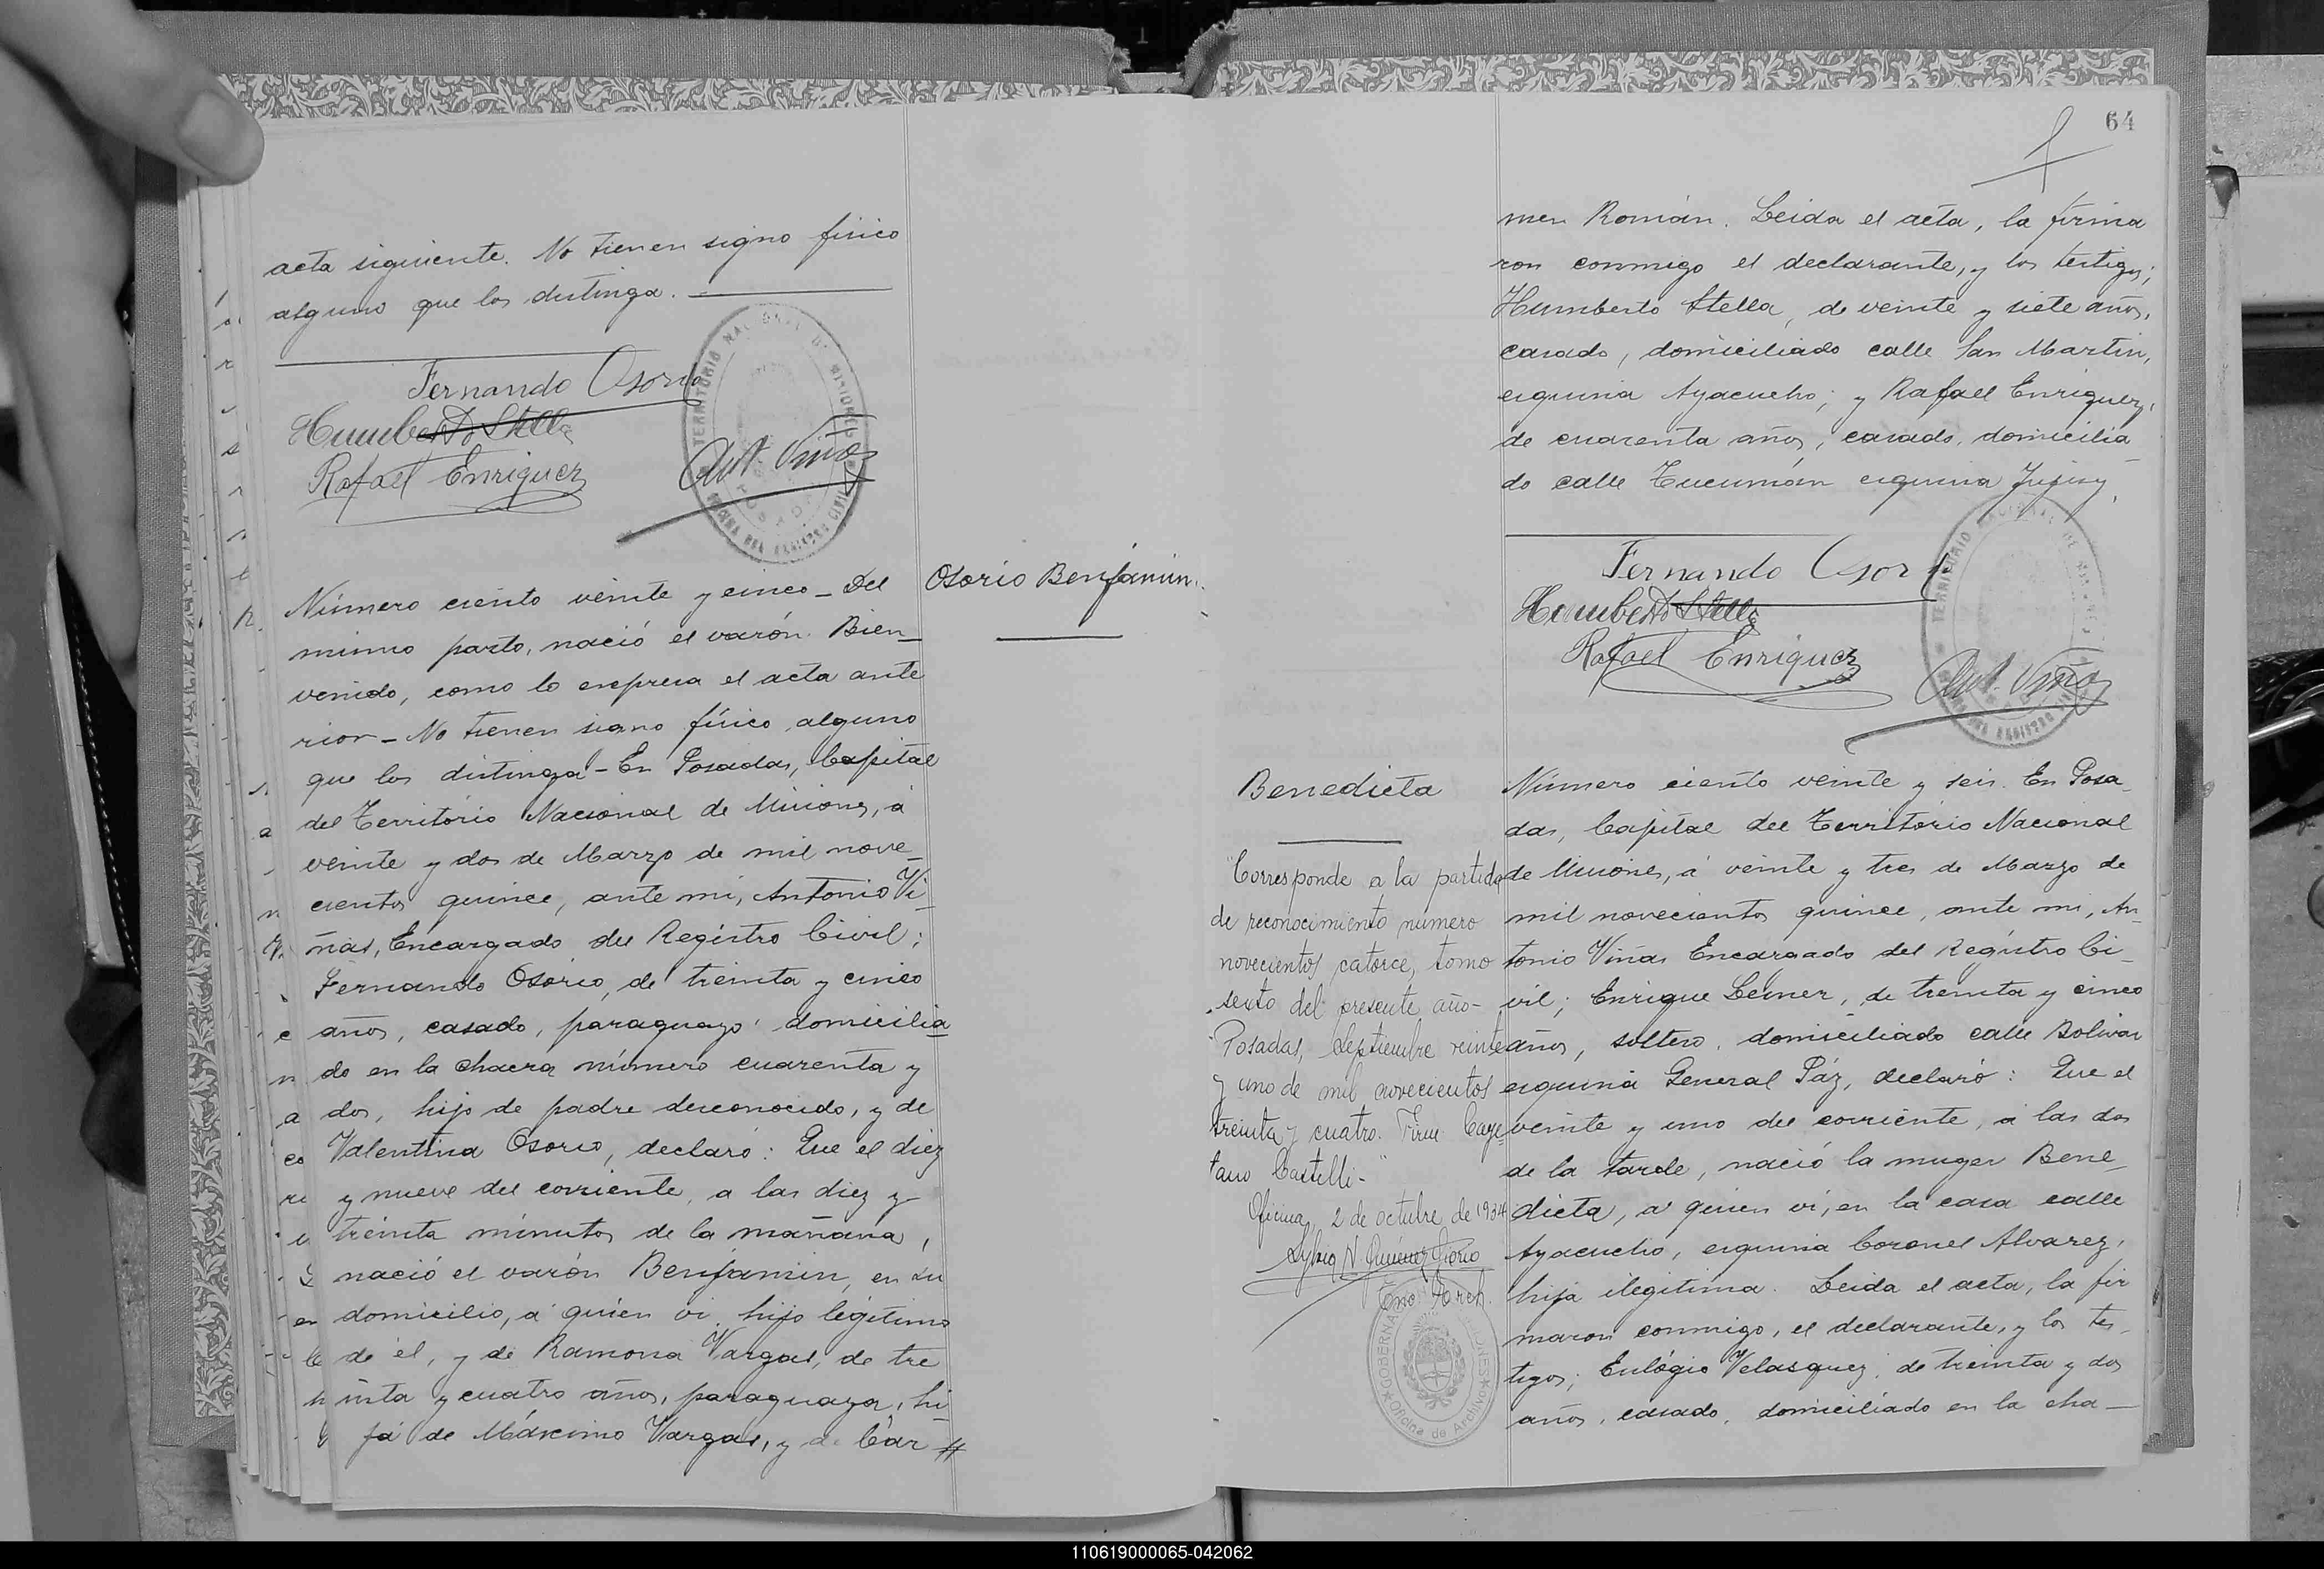 acta siguiente. No tienen signo físico
alguno que los distinga.
Fernando Osorio
Humberto Stella
Rafael Enriquez
Ant. Viñas
TERRITORIO NACIONAL DE MISIONES
OFICINA DEL REGISTRO CIVIL
Osorio Benjamin.
Número ciento veinte y cinco - Del
mismo parto, nació el varón Bien_
venido, como lo expresa el acta ante
rior - No tienen signo físico alguno
que los distinga - En Posadas, Capital
del Território Nacional de Misiones, á
veinte y dos de Marzo de mil nove_
cientos quince, ante mi, Antonio Vi_
ñas, Encargado del Registro Civil;
Fernando Osorio, de treinta y cinco
años, casado, paraguayo, domicilia
do en la chacra número cuarenta y
dos, hijo de padre desconocido, y de
Valentina Osorio, declaró: Que el diez
y nueve del corriente, a las diez y
treinta minutos de la mañana,
nació el varón Benjamin, en su
domicilio, a quien vi, hijo legítimo
de él, y de Ramona Vargas, de tre
inta y cuatro años, paraguaya, hi_
ja de Máximo Vargas, y de Cár #
64
men Román. Leida el acta, la firma
ron conmigo el declarante, y los testigos;
Humberto Stella, de veinte y siete años,
casado, domiciliado calle San Martin,
esquina Ayacucho; y Rafael Enriquez,
de cuarenta años, casado, domicilia_
do calle Tucumán esquina Jujuy,
Fernando Osorio
Humberto Stella
Rafael Enriquez
Ant. Viñas
TERRITORIO NACIONAL DE MISIONES
Benedicta
Corresponde a la partida
de reconocimiento número
novecientos catorce, tomo
sexto del presente año-
Posadas, Septiembre veinte
y uno de mil novecientos
treinta y cuatro. Firm. Caye
tano Castelli-"
Oficina, 2 de octubre de 1934
Eno. Arch.
Oficina de Archivo
Número ciento veinte y seis. En Posa_
das, Capital del Território Nacional
de Misiones, á veinte y tres de Marzo de
mil novecientos quince, ante mi, An_
tonio Viñas Encargado del Registro Ci_
vil; Enrique Lesner, de treinta y cinco
años, soltero, domiciliado calle Bolivar
esquina General Páz, declaró: Que el
veinte y uno del corriente, á las dos
de la tarde, nació la muger Bene_
dicta, a quien vi, en la casa calle
Ayacucho, esquina Coronel Alvarez,
hija ilegítima. Leida el acta, la fir
maron conmigo, el declarante, y los tes_
tigos; Eulógio Velasquez, de treinta y dos
años, casado, domiciliado en la cha_
110619000065-042062